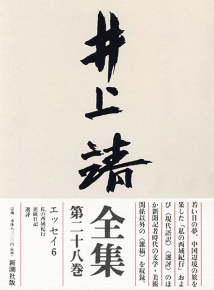 井上靖
若い日の夢、中国辺境の旅を
果した「私の西域紀行」およ
び〈現代語訳〉〈選評〉のほ
か新聞記者時代の文学・美術
関係以外の〈雑稿〉を収録。
全集
第二十八巻
エッセイ6
私の西域紀行
更級日記
選評
新潮社版